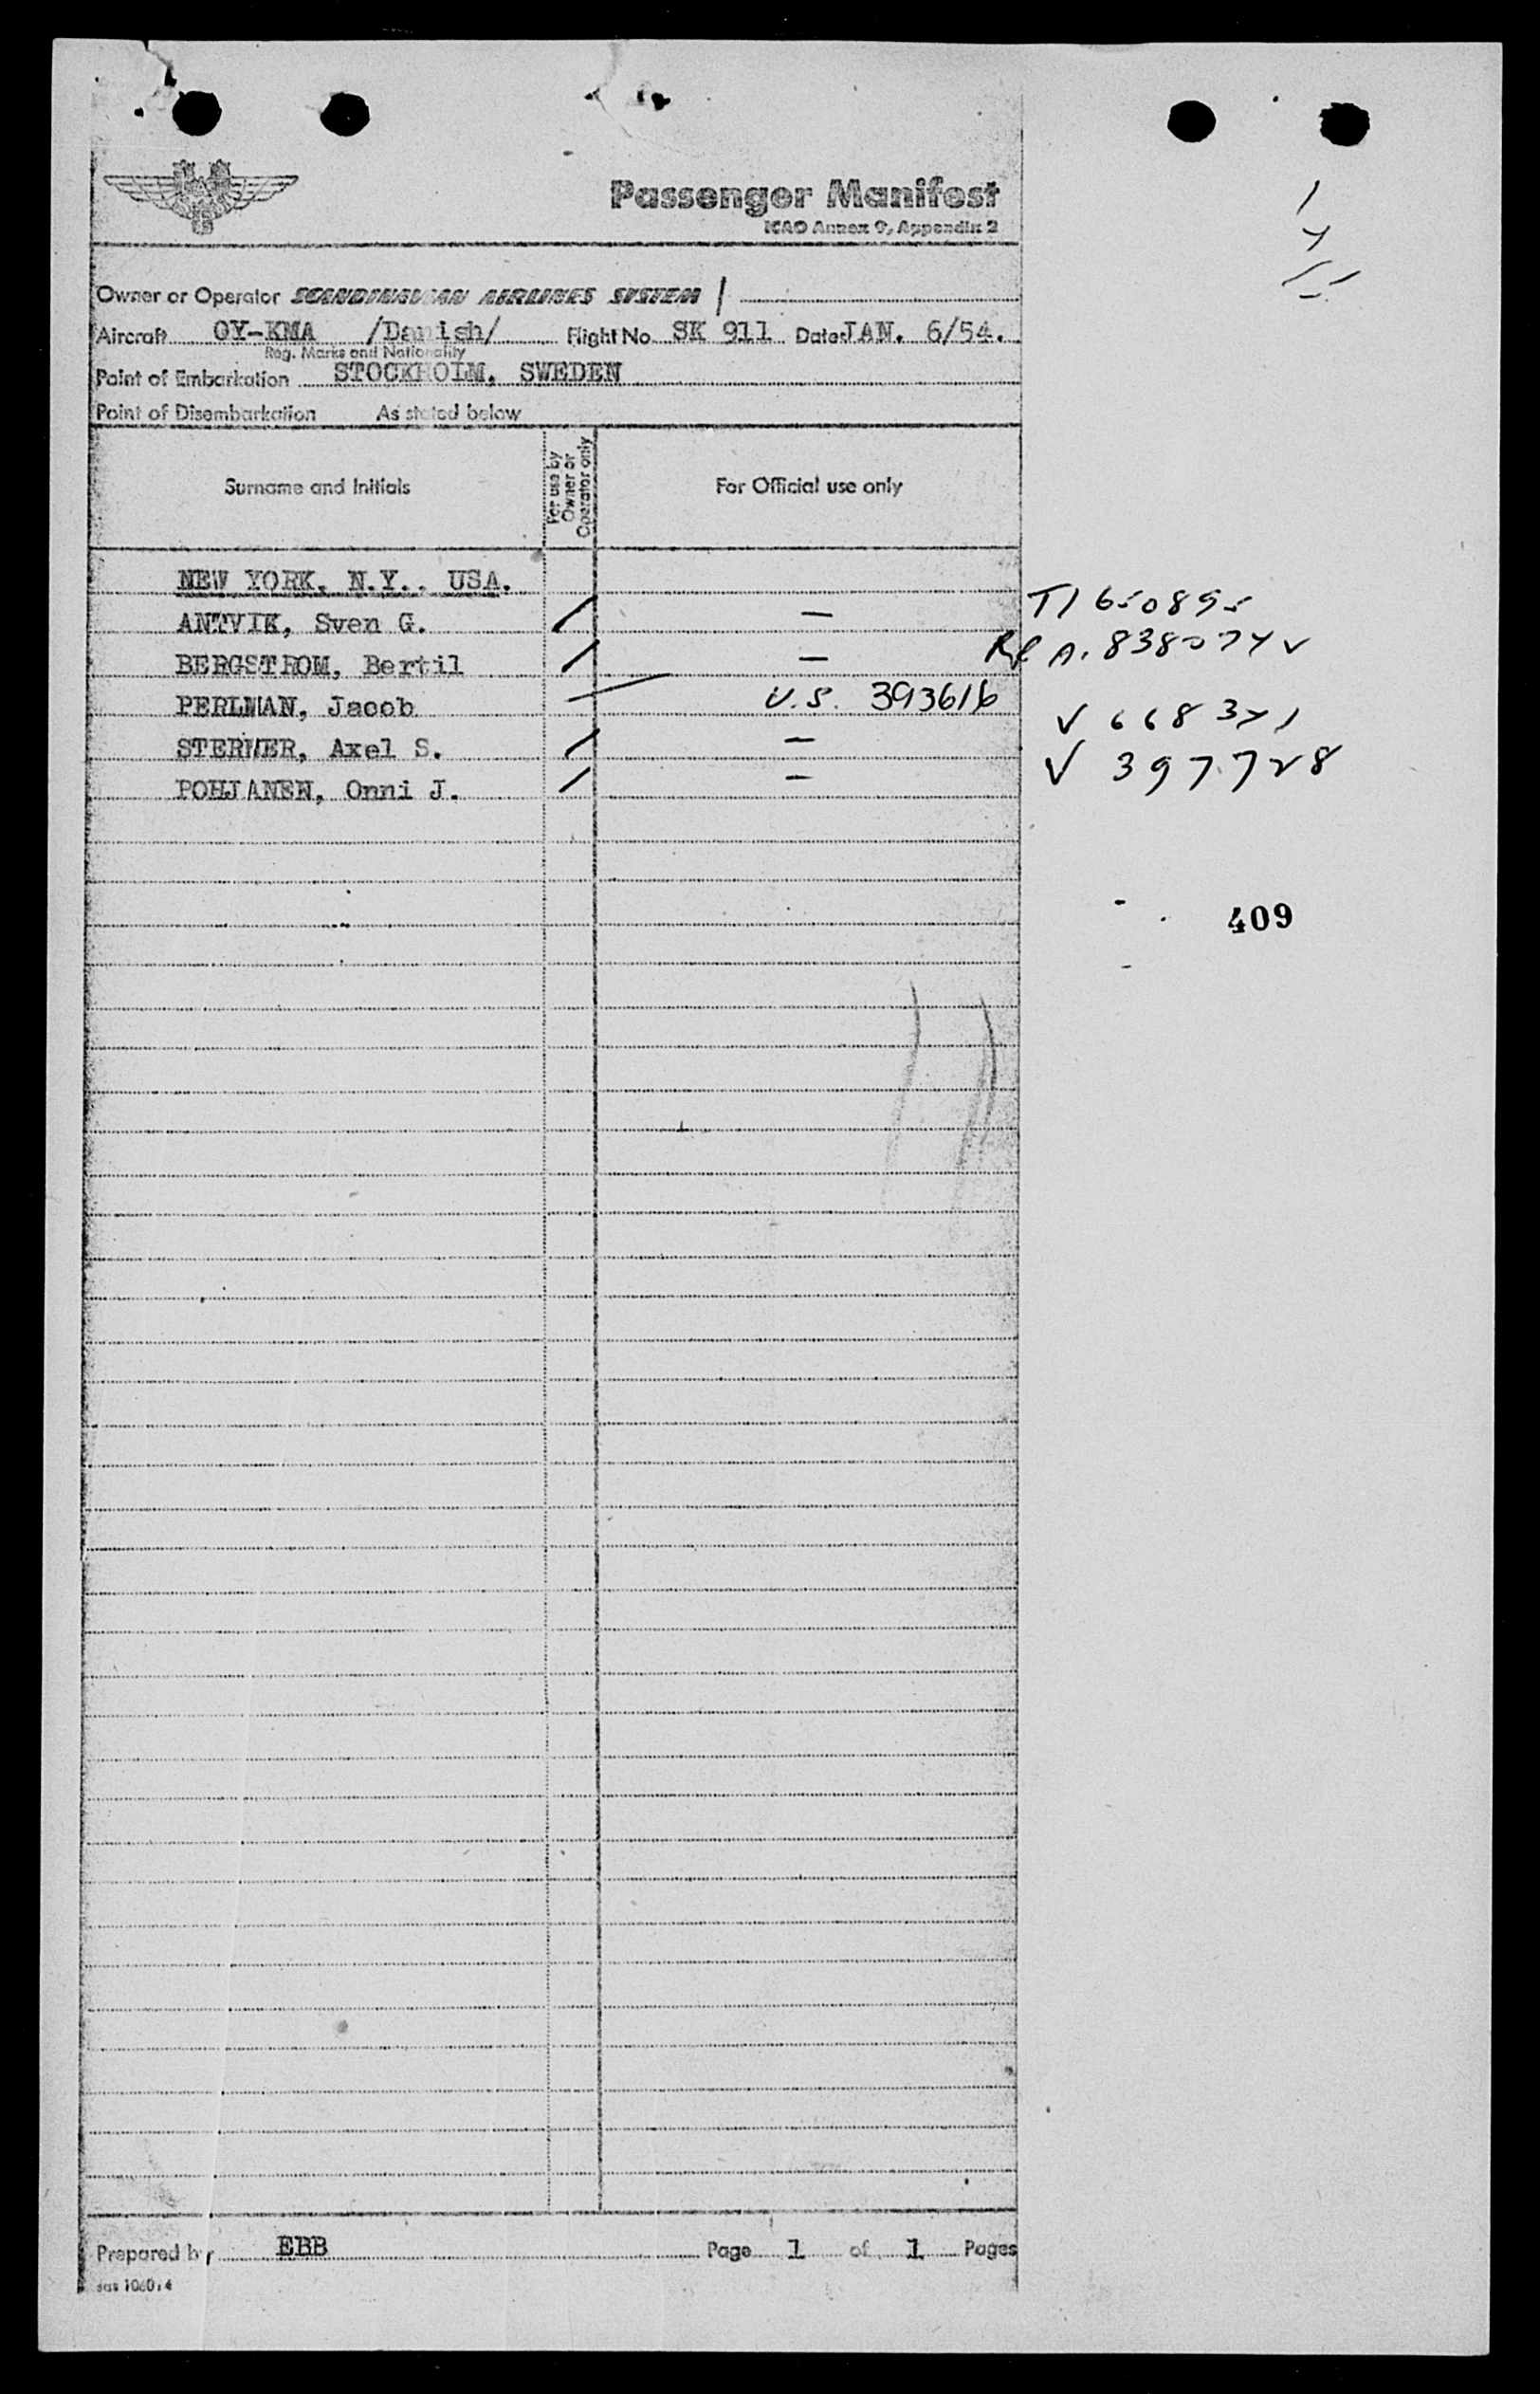 Passenger Manifest
ICAO Annex 9, Appendix 2
Owner or Operator SCANDINAVIAN AIRLINES SYSTEM
Aircraft OY-KMA /Danish/ Flight No. SK 911 Date JAN. 6/54.
Reg. Marks and Nationality
Point of Embarkation STOCKHOLM, SWEDEN
Point of Disembarkation As stated below
Surname and Initials
For use by Owner or Operator only
For Official use only
NEW YORK, N.Y., USA.
ANTVIK, Sven G. / — T1 650895
BERGSTROM, Bertil / — A. 838074
PERLMAN, Jacob — U.S. 393616
STERNER, Axel S. / — V 668341
POHJANEN, Onni J. / — V 397728
409
Prepared by EBB Page 1 of 1 Pages
sas 1060:4